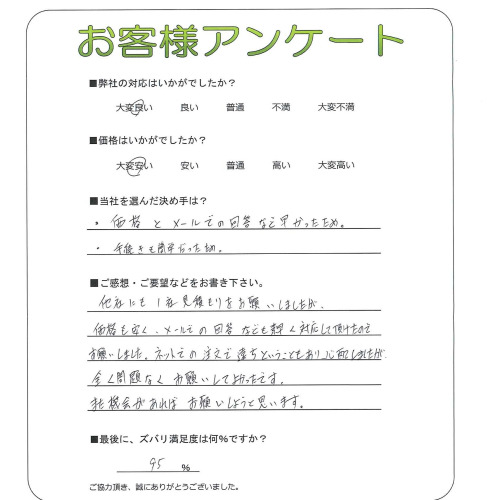 お客様アンケート
■弊社の対応はいかがでしたか？
大変良い　良い　普通　不満　大変不満
■価格はいかがでしたか？
大変安い　安い　普通　高い　大変高い
■当社を選んだ決め手は？
・価格とメールでの回答など早かったため。
・手続きも簡単だった為。
■ご感想・ご要望などをお書き下さい。
他社にも1社見積もりをお願いしましたが、
価格も安く、メールでの回答なども早く対応して頂けたので
お願いしました。ネットでの注文で ということもあり心配しましたが、
全く問題なくお願いしてよかったです。
機会があればお願いしようと思います。
■最後に、ズバリ満足度は何％ですか？
95 ％
ご協力頂き、誠にありがとうございました。